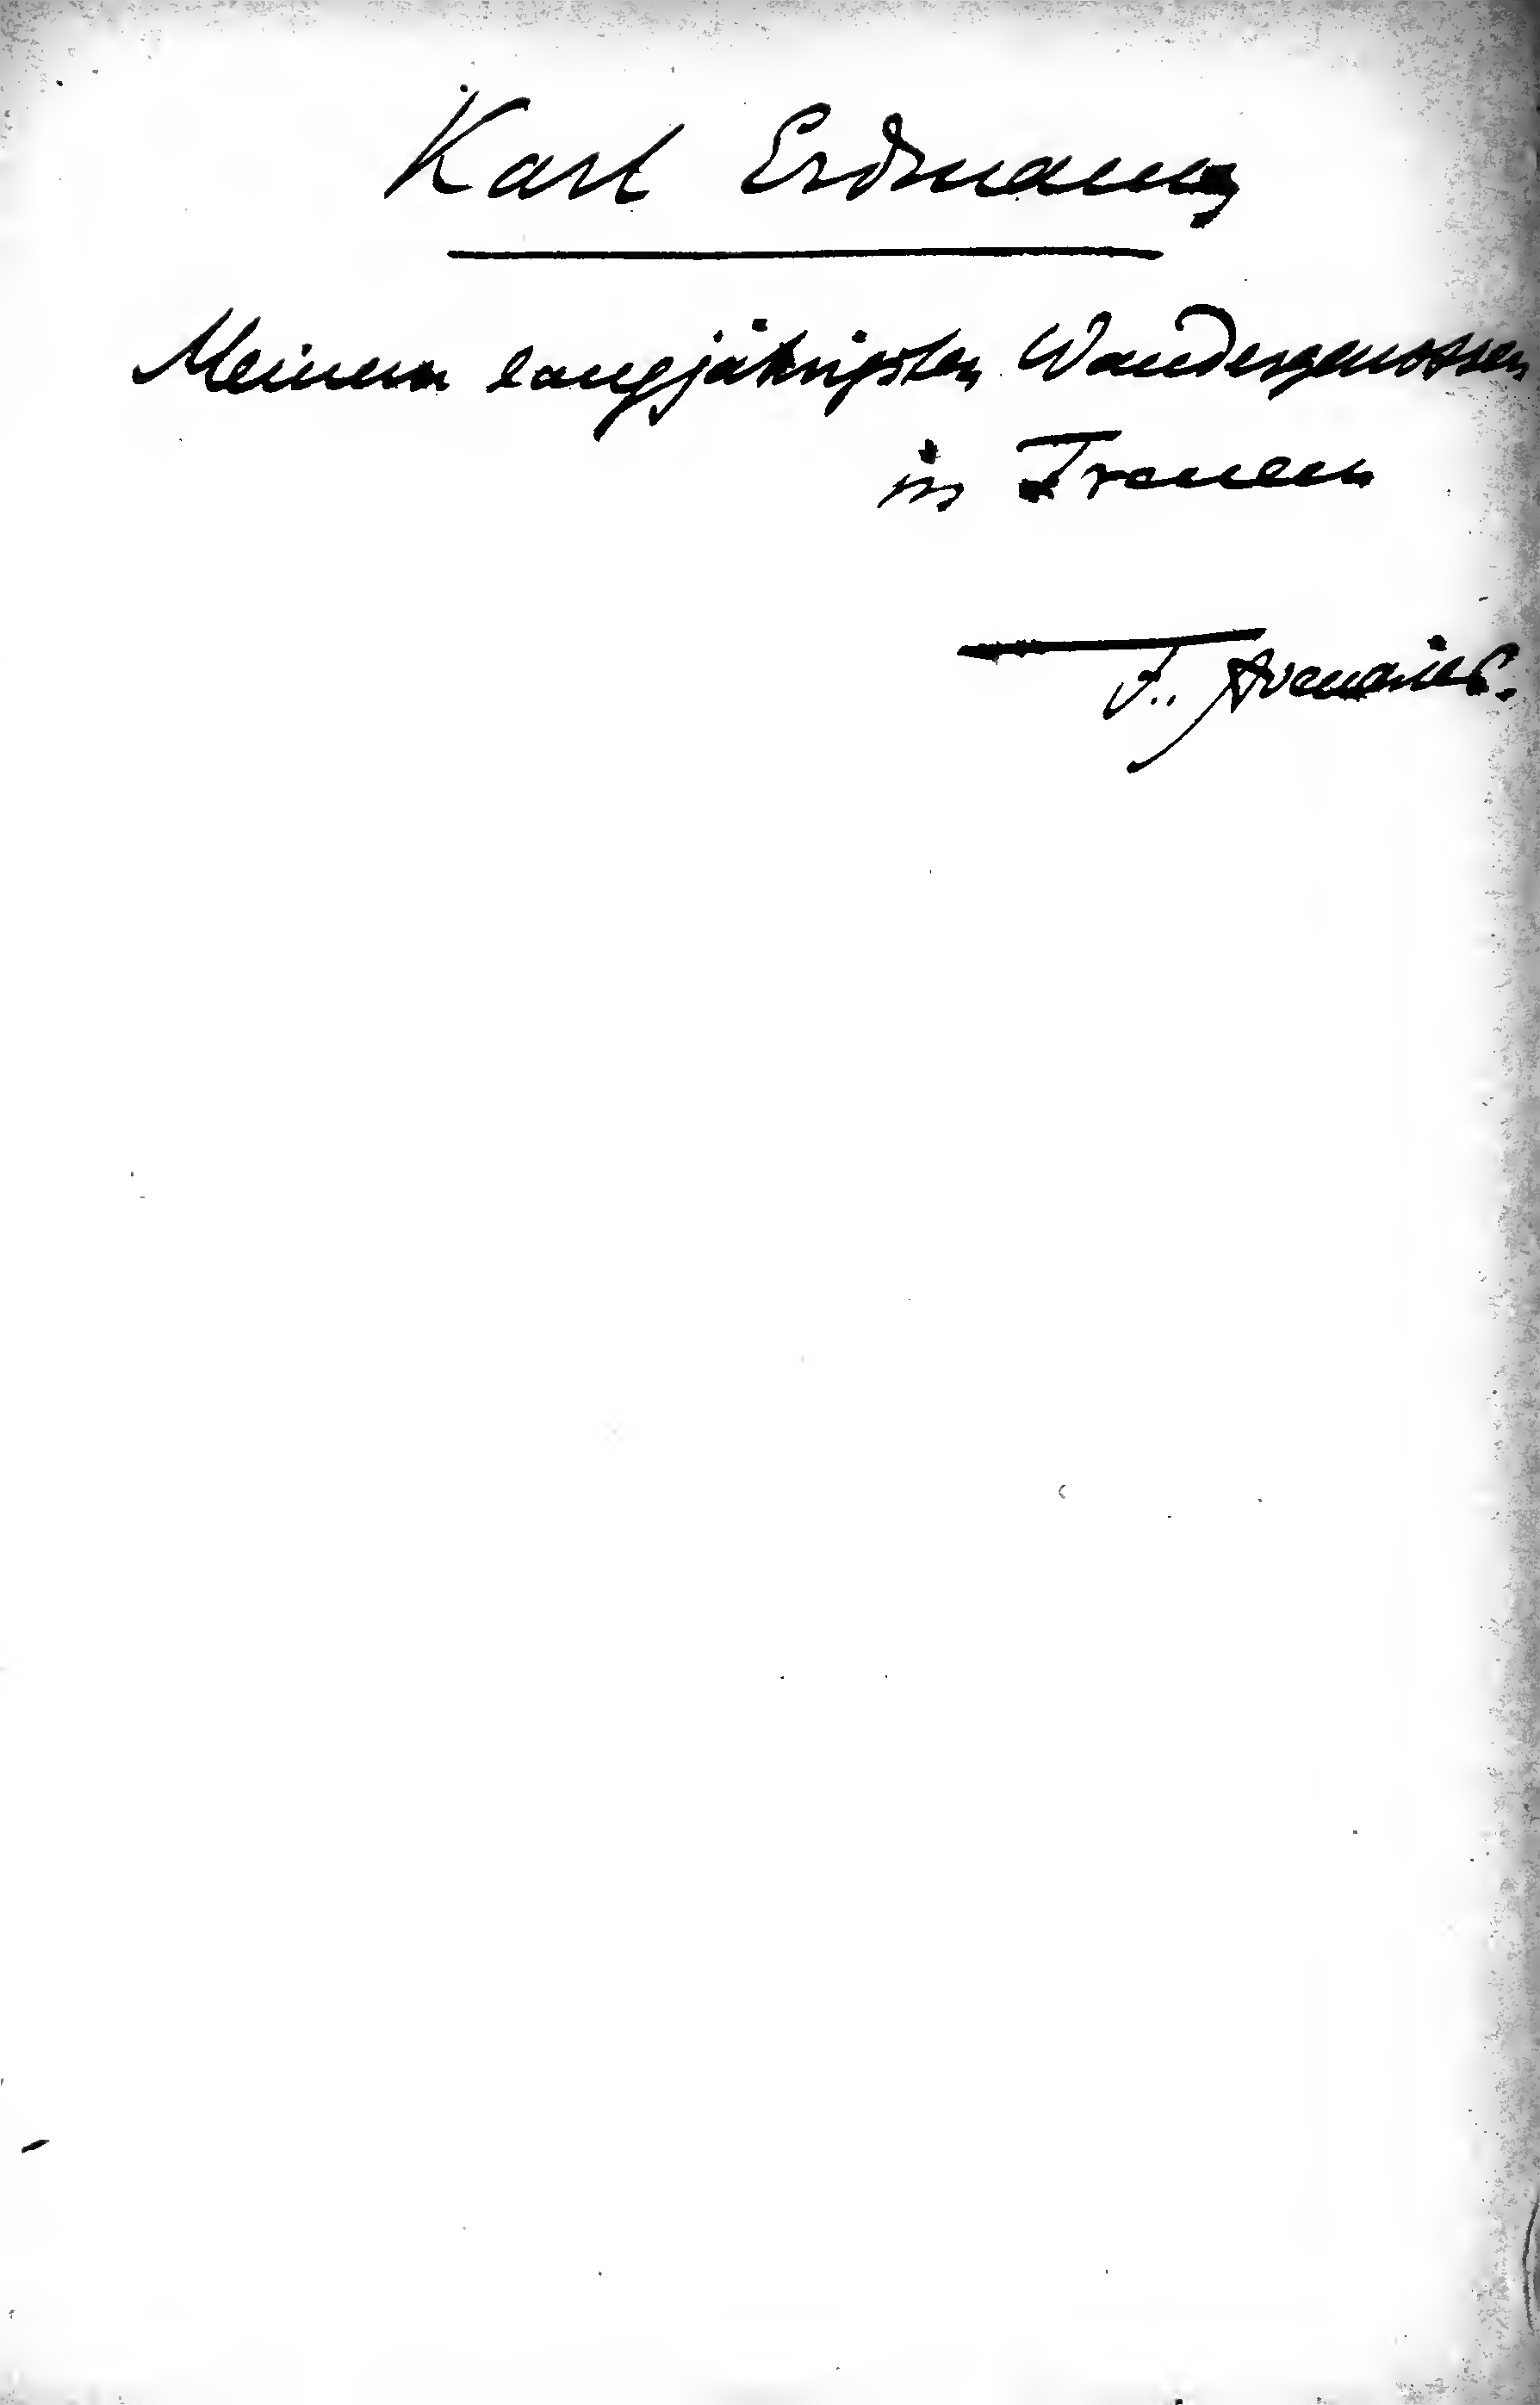 Karl Erdmann
Meinem langjährigsten Wandergenossen
in Treuen
F. Avenarius.